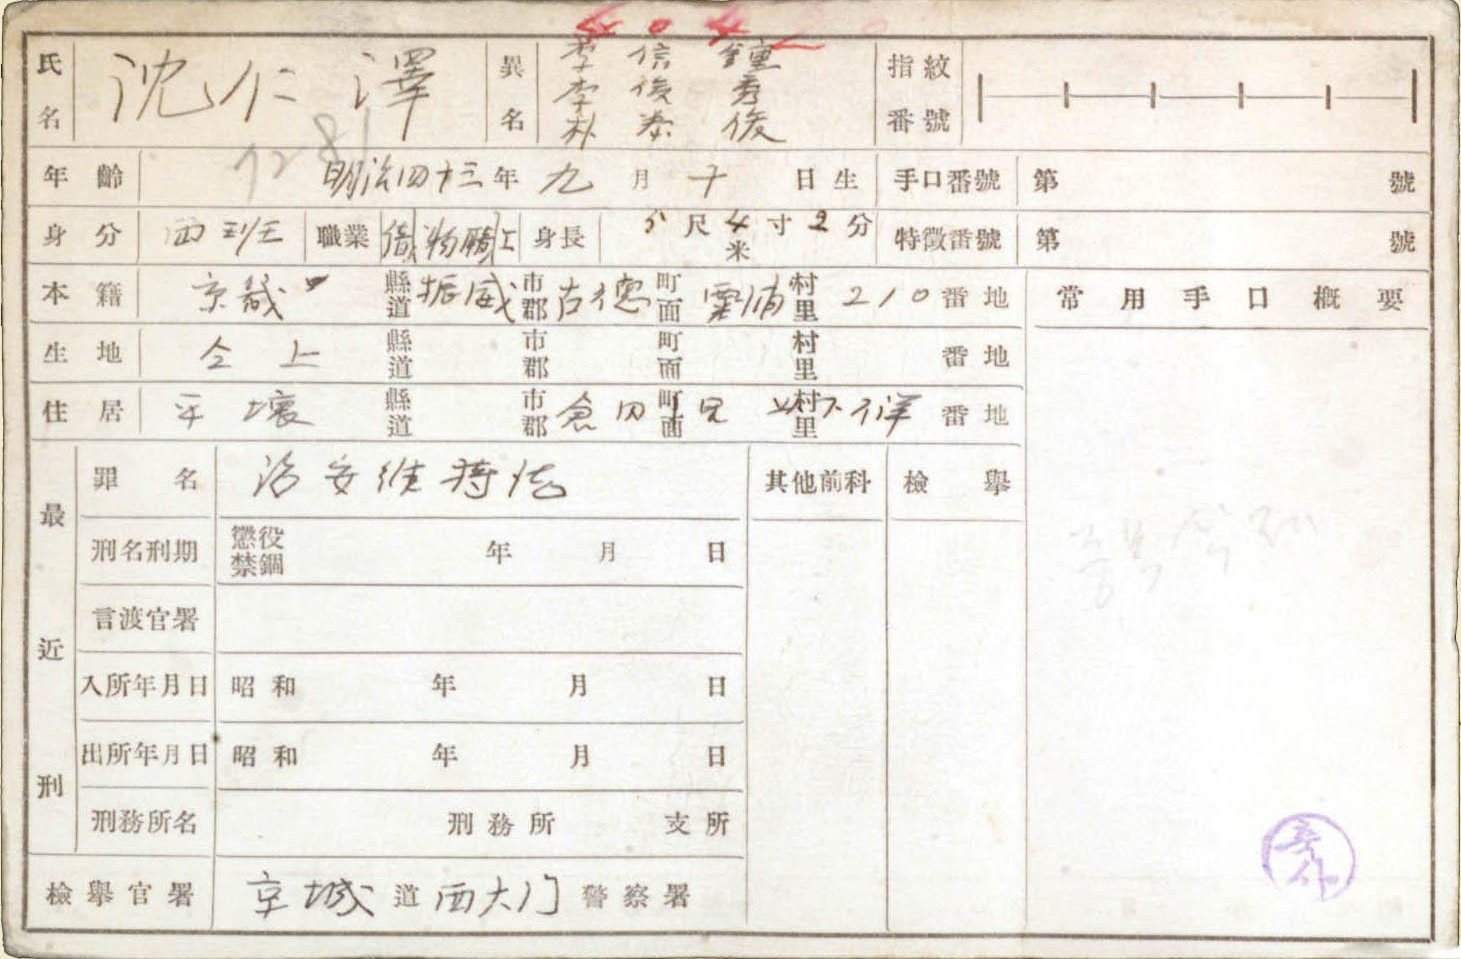 氏名 沈仁澤 異名 李信鐘 李俊秀 朴泰俊 指紋番號
7281
年齡 明治四十三年九月十日生 手口番號 第 號
身分 両班 職業 貨物 上 身長 5尺4寸2分 米 特徵番號 第 號
本籍 京畿 縣道 振威 市郡 古德 町面 村里 210番地 常用手口概要
生地 仝上 縣道 市郡 町面 村里 番地
住居 平壤 縣道 市郡 倉田 町面 以下不詳 村里 番地
最近刑
罪名 治安維持法 其他前科 檢擧
刑名刑期 懲役 禁錮 年 月 日
言渡官署
入所年月日 昭和 年 月 日
出所年月日 昭和 年 月 日
刑務所名 刑務所 支所
檢擧官署 京城道西大门警察署